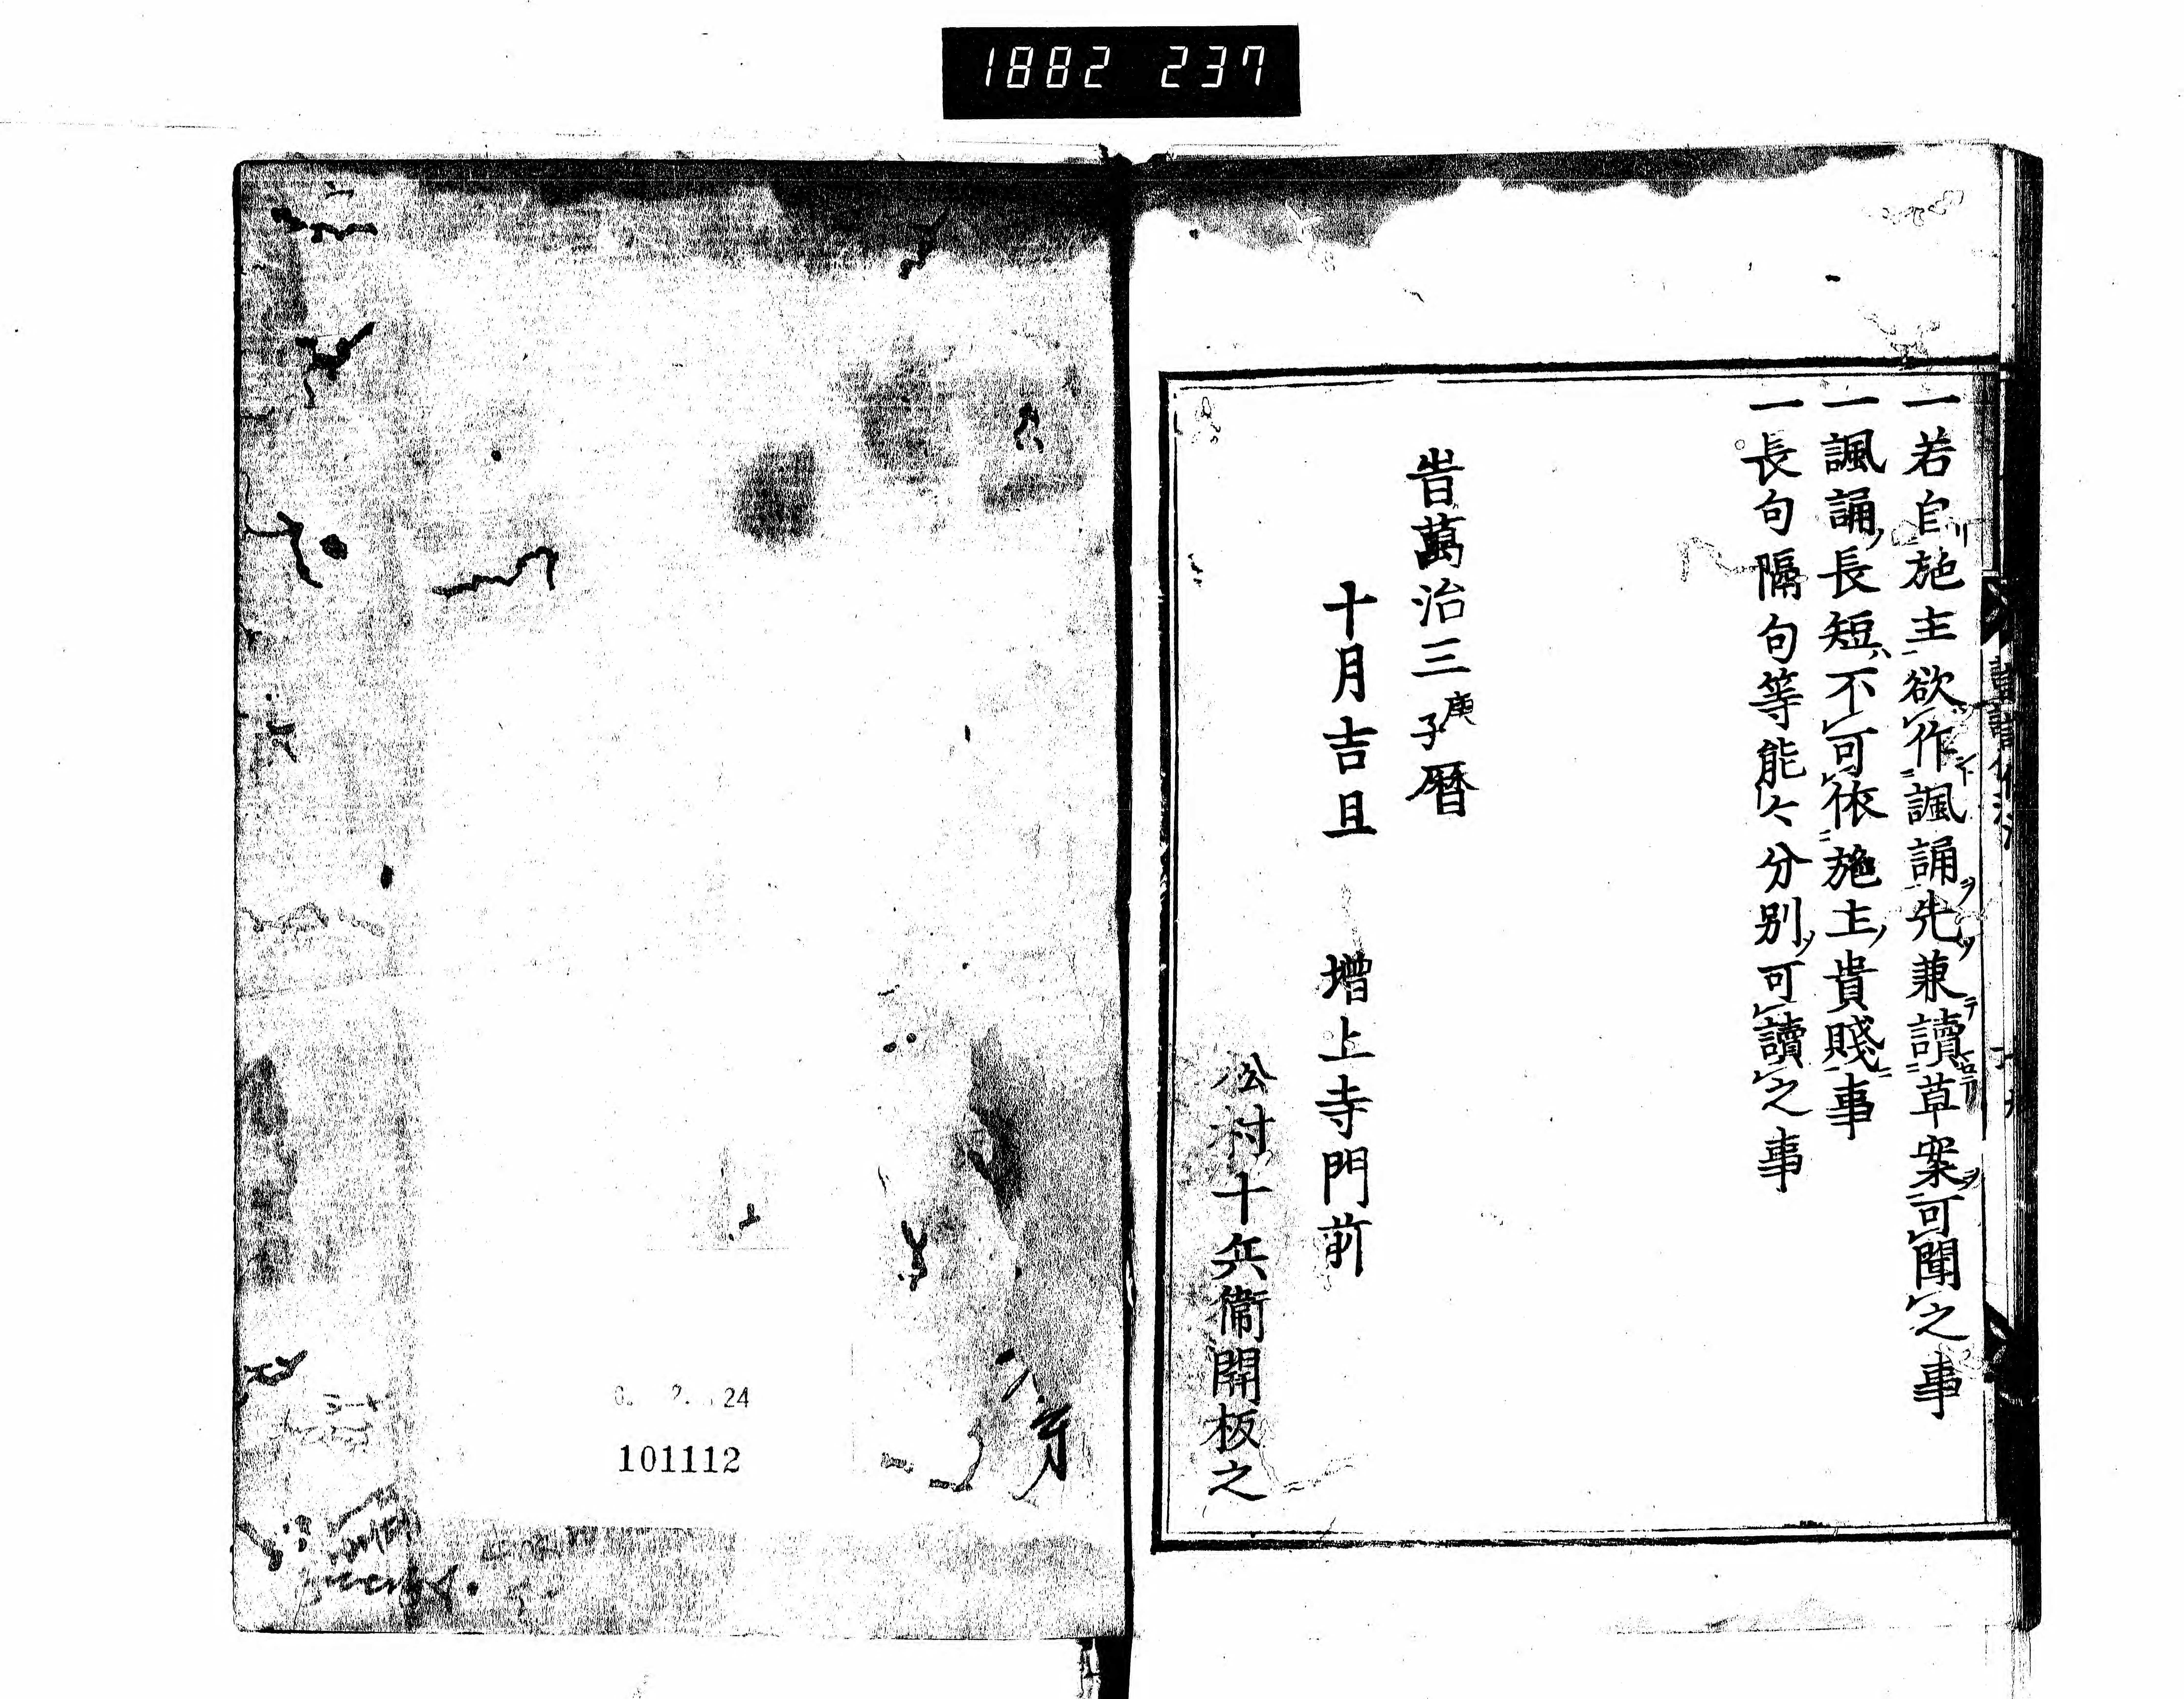 1882 237
一若自施主欲作諷誦先兼讀草案可聞之事
一諷誦長短不可依施主貴賤事
一長句隔句等能々分別可讀之事
旹萬治三庚子暦
十月吉旦 増上寺門前
村十兵衛開板之
24
101112